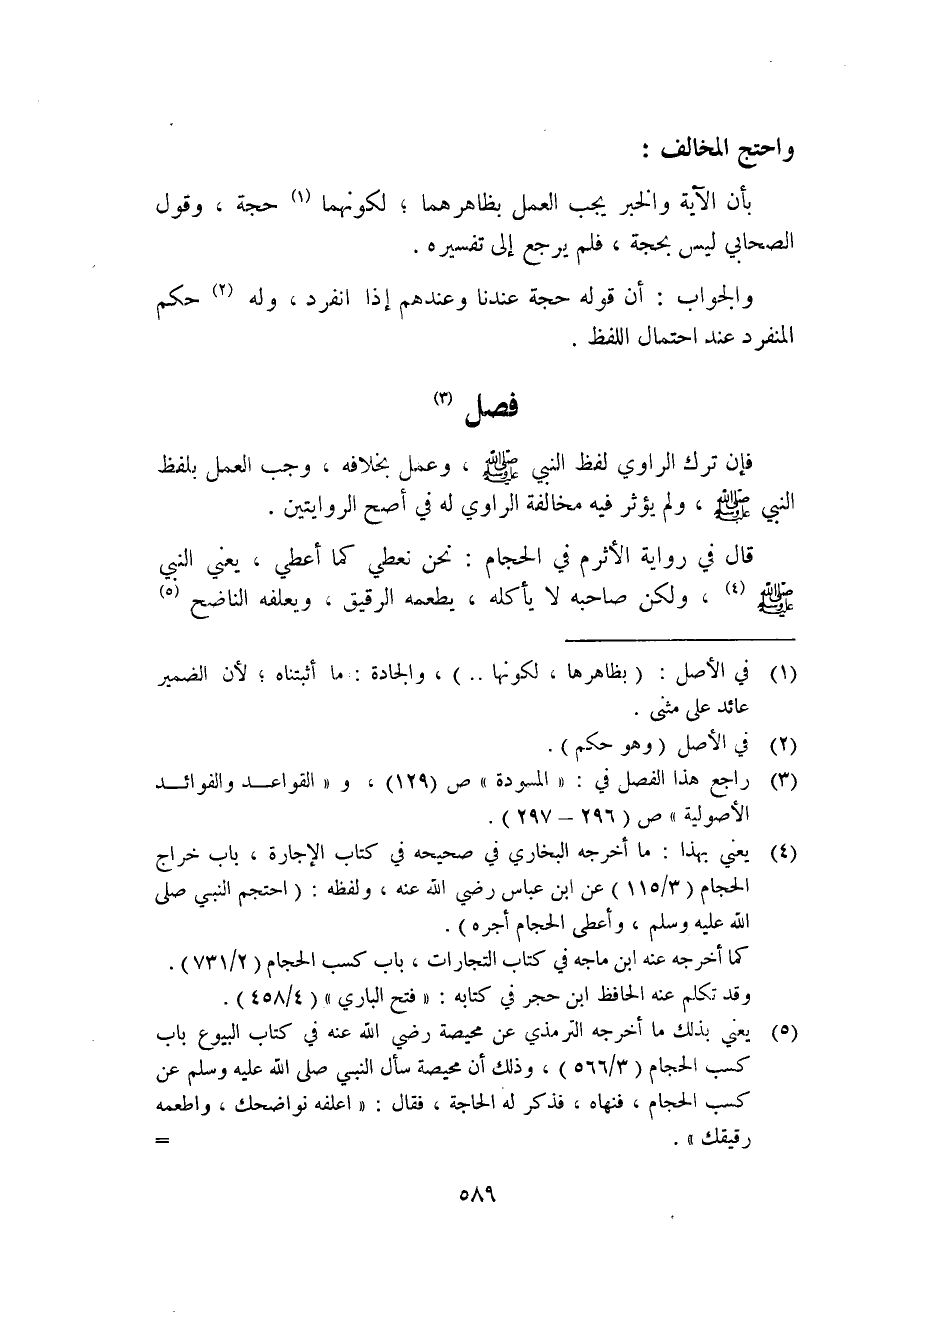 واحتج المخالف :
بأن الآية والخبر يجب العمل بظاهرهما ؛ لكونهما (١) حجة ، وقول
الصحابي ليس بحجة ، فلم يرجع إلى تفسيره .
والجواب : أن قوله حجة عندنا وعندهم إذا انفرد ، وله (٢) حكم
المنفرد عند احتمال اللفظ .
فصل (٣)
فإن ترك الراوي لفظ النبي ﷺ ، وعمل بخلافه ، وجب العمل بلفظ
النبي ﷺ ، ولم يؤثر فيه مخالفة الراوي له في أصح الروايتين .
قال في رواية الأثرم في الحجام : نحن نعطي كما أعطي ، يعني النبي
ﷺ (٤) ، ولكن صاحبه لا يأكله ، يطعمه الرقيق ، ويعلفه الناضح (٥)
(١) في الأصل : ( بظاهرها ، لكونها .. ) ، والجادة : ما أثبتناه ؛ لأن الضمير
عائد على مثنى .
(٢) في الأصل ( وهو حكم ) .
(٣) راجع هذا الفصل في : « المسودة » ص (١٢٩) ، و « القواعد والفوائد
الأصولية » ص ( ٢٩٦ – ٢٩٧ ) .
(٤) يعني بهذا : ما أخرجه البخاري في صحيحه في كتاب الإجارة ، باب خراج
الحجام ( ١١٥/٣ ) عن ابن عباس رضي الله عنه ، ولفظه : ( احتجم النبي صلى
الله عليه وسلم ، وأعطى الحجام أجره ) .
كما أخرجه عنه ابن ماجه في كتاب التجارات ، باب كسب الحجام ( ٧٣١/٢ ) .
وقد تكلم عنه الحافظ ابن حجر في كتابه : « فتح الباري » ( ٤٥٨/٤ ) .
(٥) يعني بذلك ما أخرجه الترمذي عن محيصة رضي الله عنه في كتاب البيوع باب
كسب الحجام ( ٥٦٦/٣ ) ، وذلك أن محيصة سأل النبي صلى الله عليه وسلم عن
كسب الحجام ، فنهاه ، فذكر له الحاجة ، فقال : « اعلفه نواضحك ، واطعمه
رقيقك » . =
٥٨٩